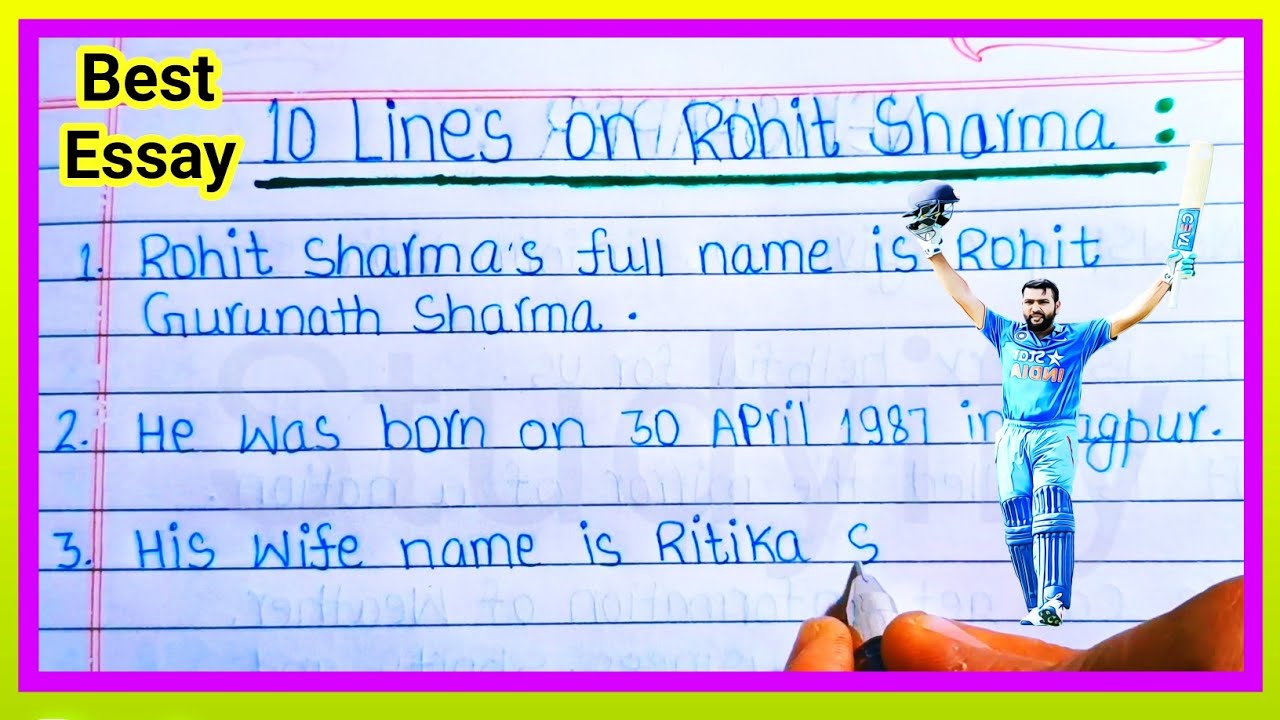 Best
Essay
10 Lines on Rohit Sharma :
1. Rohit Sharma's full name is Rohit
Gurunath Sharma.
2. He was born on 30 April 1987 in gpur.
3. His Wife name is Ritika S
Studyify
CEVI
STAR
INDIA